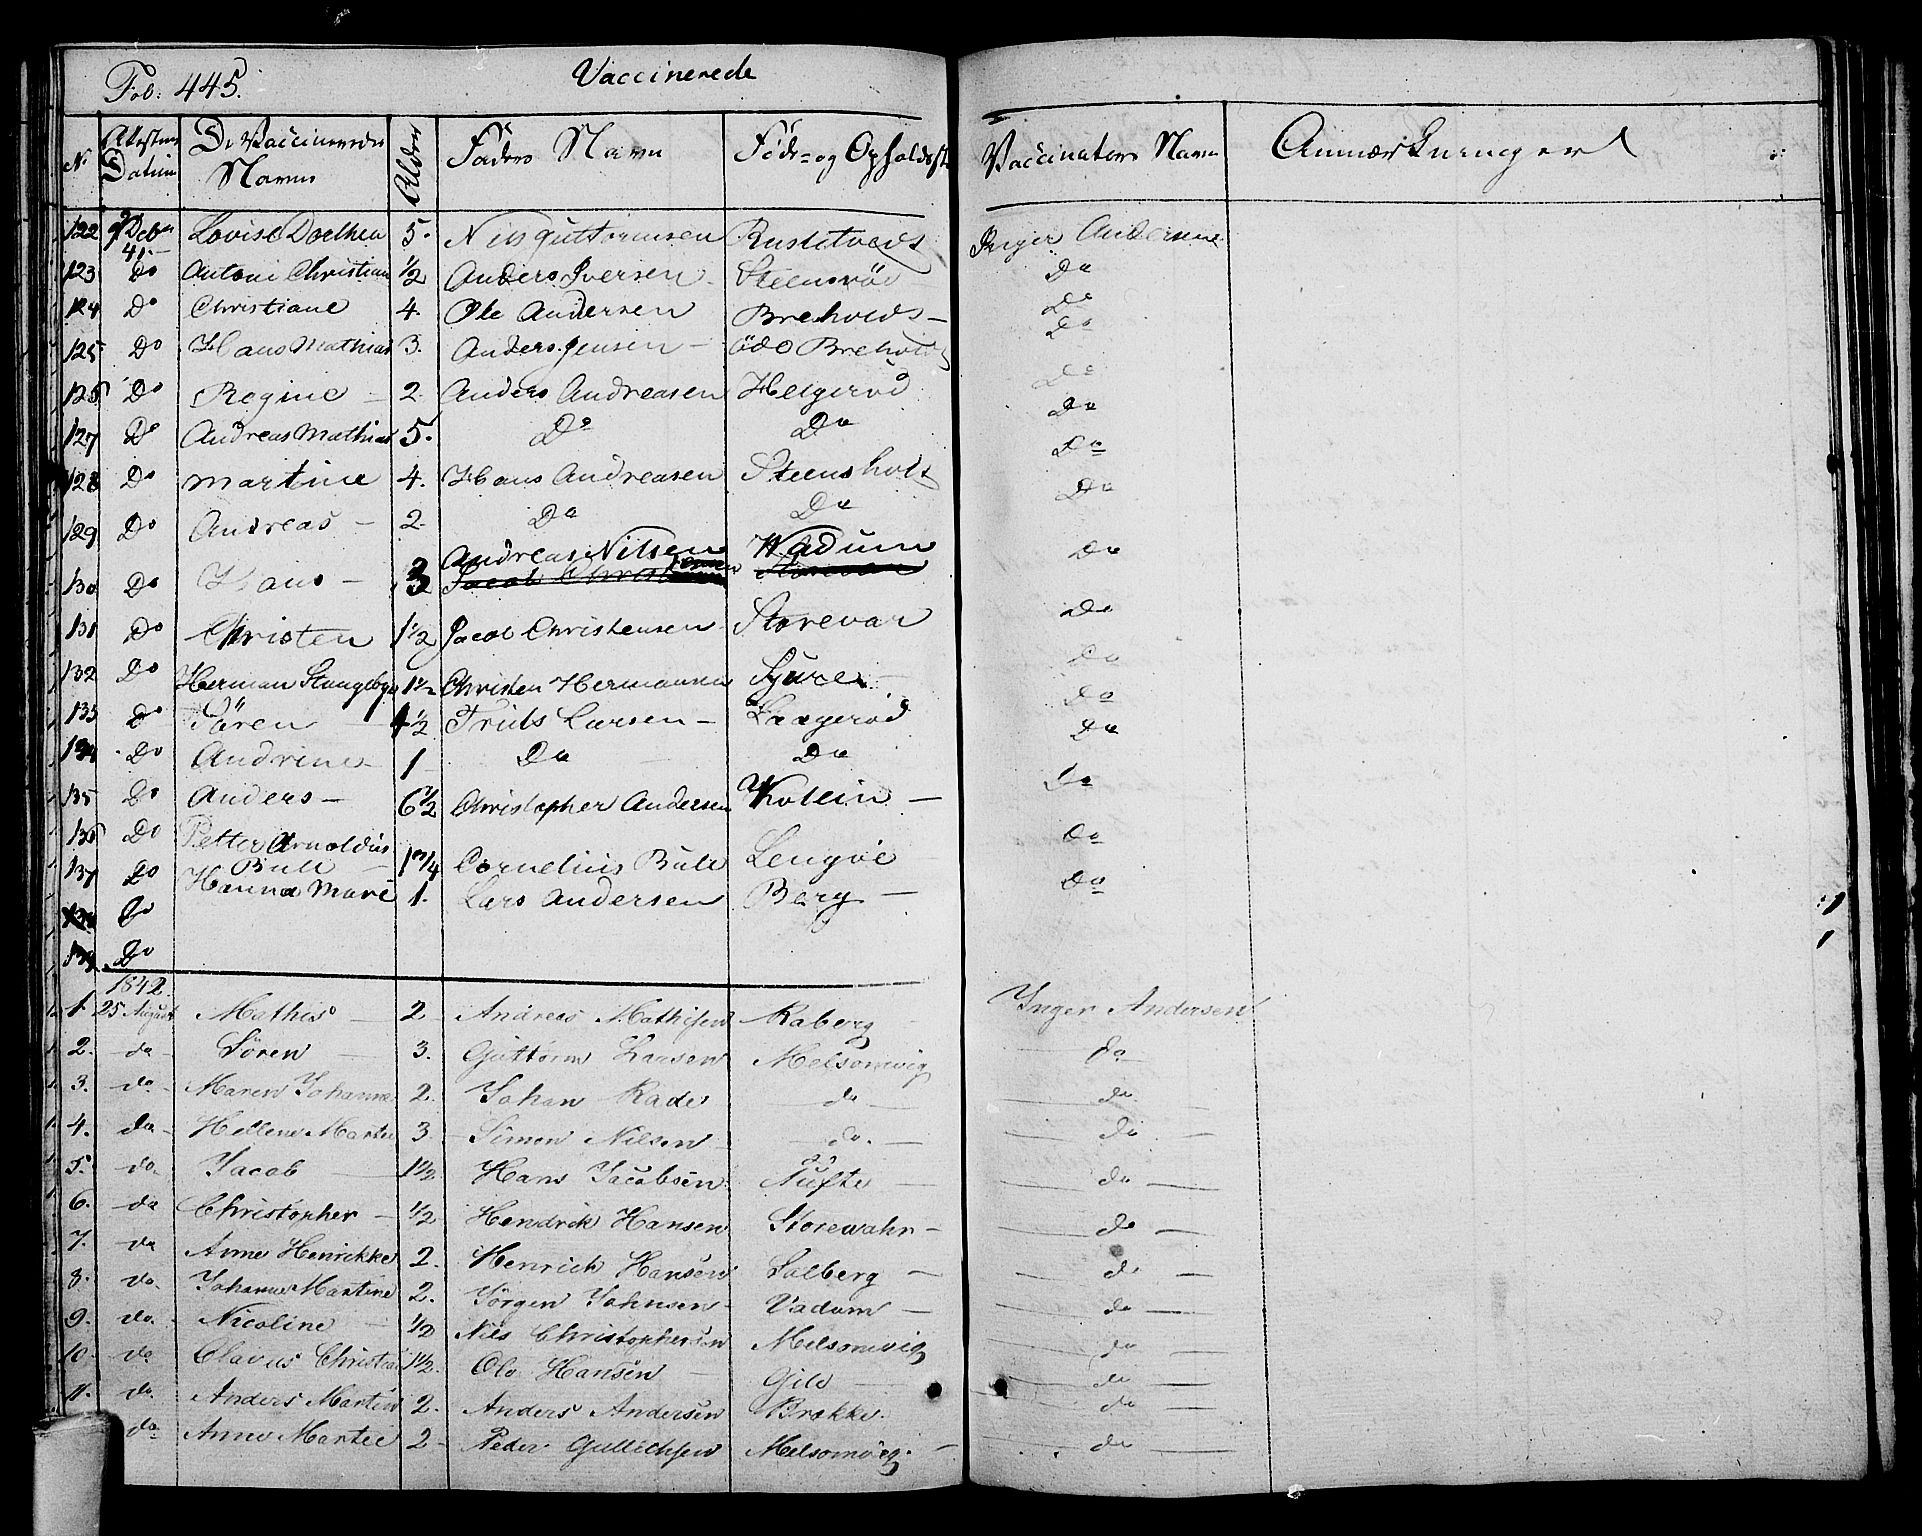 Fol: 445. Vaccinerede
No Attestens Datum De Vaccineredes Navne Alder Faders Navn Føde- og Opholdsst Vaccinateurs Navn Anmærkninger
122 9 Decbr 41. Lovise Dorthea 5. Nils Guttormsen Inger Andersen
123 Do Antoni Christian 1/2 Anders Iversen Do
124 Do Christiane 4. Ole Andersen Breholds Do
125 Do Hans Mathias 3. Anders Jensen öde Breholdt Do
126 Do Regine 2. Anders Andreasen Helgeröd Do
127 Do Andreas Mathias 5. Do Do Do
128 Do Martine 4. Hans Andreasen Steensholt Do
129 Do Andreas 2. Do Do Do
130 Do Hans 3 Andreas Nilsen Wadum Do
131 Do Christen 1 1/2 Jacob Christensen Storevar Do
132 Do Herman Stangebye 1 1/2 Christen Hermansen Do
133 Do Sören 4 1/2 Truls Larsen Do
134 Do Andrine 1 Do Do Do
135 Do Anders 6 1/2 Christopher Andersen Do
136 Do Petter Arnoldus Bull 1 3/4 Cornelius Bull Lengöe Do
137 Do Hanna Marie 1. Lars Andersen Berg Do
138 Do
139 Do
1842.
1. 25 August Mathis 2 Andreas Mathisen Raberg Inger Andersen
2. do Sören 3. Guttorm Larsen Melsomvig do
3. do Maren Johanne 2. Johan Rade do do
4. do Hellene Marte 3 Simon Nilsen do. do
5. do. Jacob 1 1/2 Hans Jacobsen Tufte do
6. do Christopher 1/2 Hendrik Hansen Storewahr do
7. do Anne Henrikke 2. Henrich Hansen Solberg do
8. do. Johanne Martine 2. Jörgen Johnsen Vadum do
9. do. Nicoline 1/2 Nils Christophersen Melsomvig do
10. do Olavus Christian 1 1/2. Ole Hansen do
11. do. Anders Martin 2. Anders Andersen Brække. do
do Anne Marte 2 Peder Gullichsen Melsomvig. do